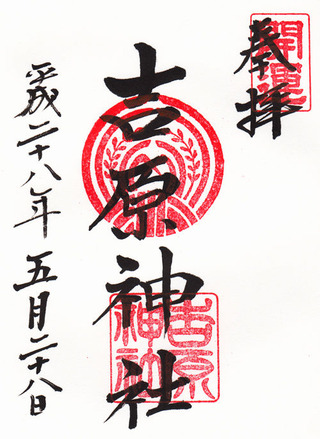 奉拝
開運
吉原神社
吉原
神社
平成二十八年五月二十八日